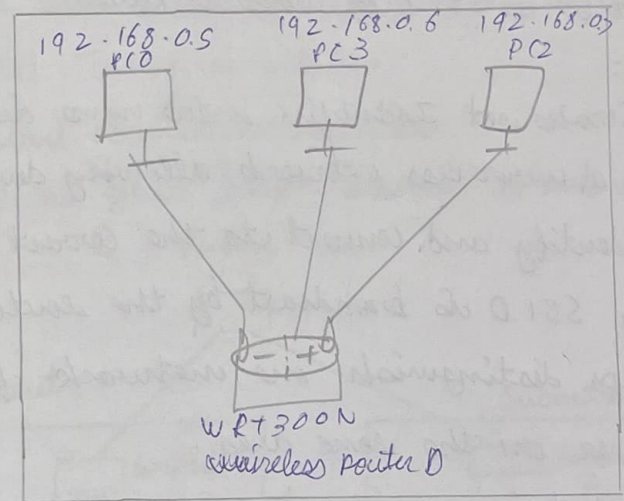 192.168.0.5
PC0
192.168.0.6
PC3
192.168.0.
PC2
WRT300N
wireless router D